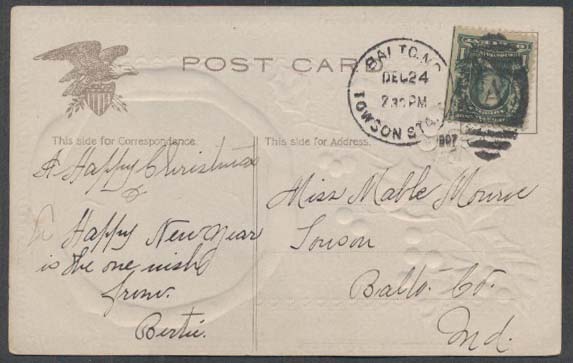 POST CARD
BALTO. MD.
DEC 24
2 30 PM
TOWSON STA.
1907
This side for Correspondence.
This side for Address.
A Happy Christmas
&
A Happy New Year
is the one wish
from.
Bertie.
Miss Mable Monroe
Touson
Balto. Co.
Md.